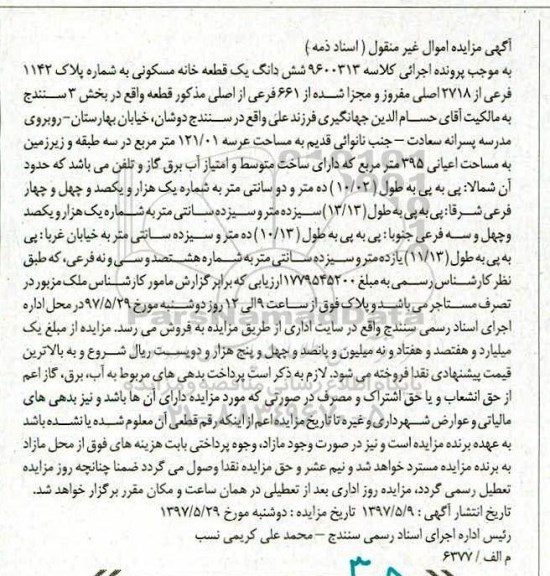 آگهی مزایده اموال غیر منقول ( اسناد ذمه )
به موجب پرونده اجرائی کلاسه ۹۶۰۰۳۱۳ شش دانگ یک قطعه خانه مسکونی به شماره پلاک ۱۱۴۲
فرعی از ۲۷۱۸ اصلی مفروز و مجزا شده از ۶۶۱ فرعی از اصلی مذکور قطعه واقع در بخش ۳ سنندج
به مالکیت آقای حسام الدین جهانگیری فرزند علی واقع در سنندج دوشان، خیابان بهارستان– روبروی
مدرسه پسرانه سعادت – جنب نانوائی قدیم به مساحت عرصه ۱۲۱/۰۱ متر مربع در سه طبقه و زیرزمین
به مساحت اعیانی ۳۹۵ متر مربع که دارای ساخت متوسط و امتیاز آب برق گاز و تلفن می باشد که حدود
آن شمالا: پی به پی به طول ( ۱۰/۰۲ ) ده متر و دو سانتی متر به شماره یک هزار و یکصد و چهل و چهار
فرعی شرقا: پی به پی به طول ( ۱۳/۱۳ ) سیزده متر و سیزده سانتی متر به شماره یک هزار و یکصد
وچهل و سه فرعی جنوبا: پی به پی به طول ( ۱۰/۱۳ ) ده متر و سیزده سانتی متر به خیابان غربا: پی
به پی به طول ( ۱۱/۱۳ ) یازده متر و سیزده سانتی متر به شماره هشتصد و سی و نه فرعی، که طبق
نظر کارشناس رسمی به مبلغ ۱۷۷۹۵۴۵۲۰۰ ارزیابی که برابر گزارش مامور کارشناس ملک مزبور در
تصرف مستاجر می باشد و پلاک فوق از ساعت ۹ الی ۱۲ روز دوشنبه مورخ ۹۷/۵/۲۹ در محل اداره
اجرای اسناد رسمی سنندج واقع در سایت اداری از طریق مزایده به فروش می رسد. مزایده از مبلغ یک
میلیارد و هفتصد و هفتاد و نه میلیون و پانصد و چهل و پنج هزار و دویست ریال شروع و به بالاترین
قیمت پیشنهادی نقدا فروخته می شود. لازم به ذکر است پرداخت بدهی های مربوط به آب، برق، گاز اعم
از حق انشعاب و یا حق اشتراک و مصرف در صورتی که مورد مزایده دارای آن ها باشد و نیز بدهی های
مالیاتی و عوارض شهرداری و غیره تا تاریخ مزایده اعم از اینکه رقم قطعی آن معلوم شده یا نشده باشد
به عهده برنده مزایده است و نیز در صورت وجود مازاد، وجوه پرداختی بابت هزینه های فوق از محل مازاد
به برنده مزایده مسترد خواهد شد و نیم عشر و حق مزایده نقدا وصول می گردد ضمنا چنانچه روز مزایده
تعطیل رسمی گردد، مزایده روز اداری بعد از تعطیلی در همان ساعت و مکان مقرر برگزار خواهد شد.
تاریخ انتشار آگهی : ۱۳۹۷/۵/۹ تاریخ مزایده : دوشنبه مورخ ۱۳۹۷/۵/۲۹
رئیس اداره اجرای اسناد رسمی سنندج – محمد علی کریمی نسب
م الف / ۶۳۷۷